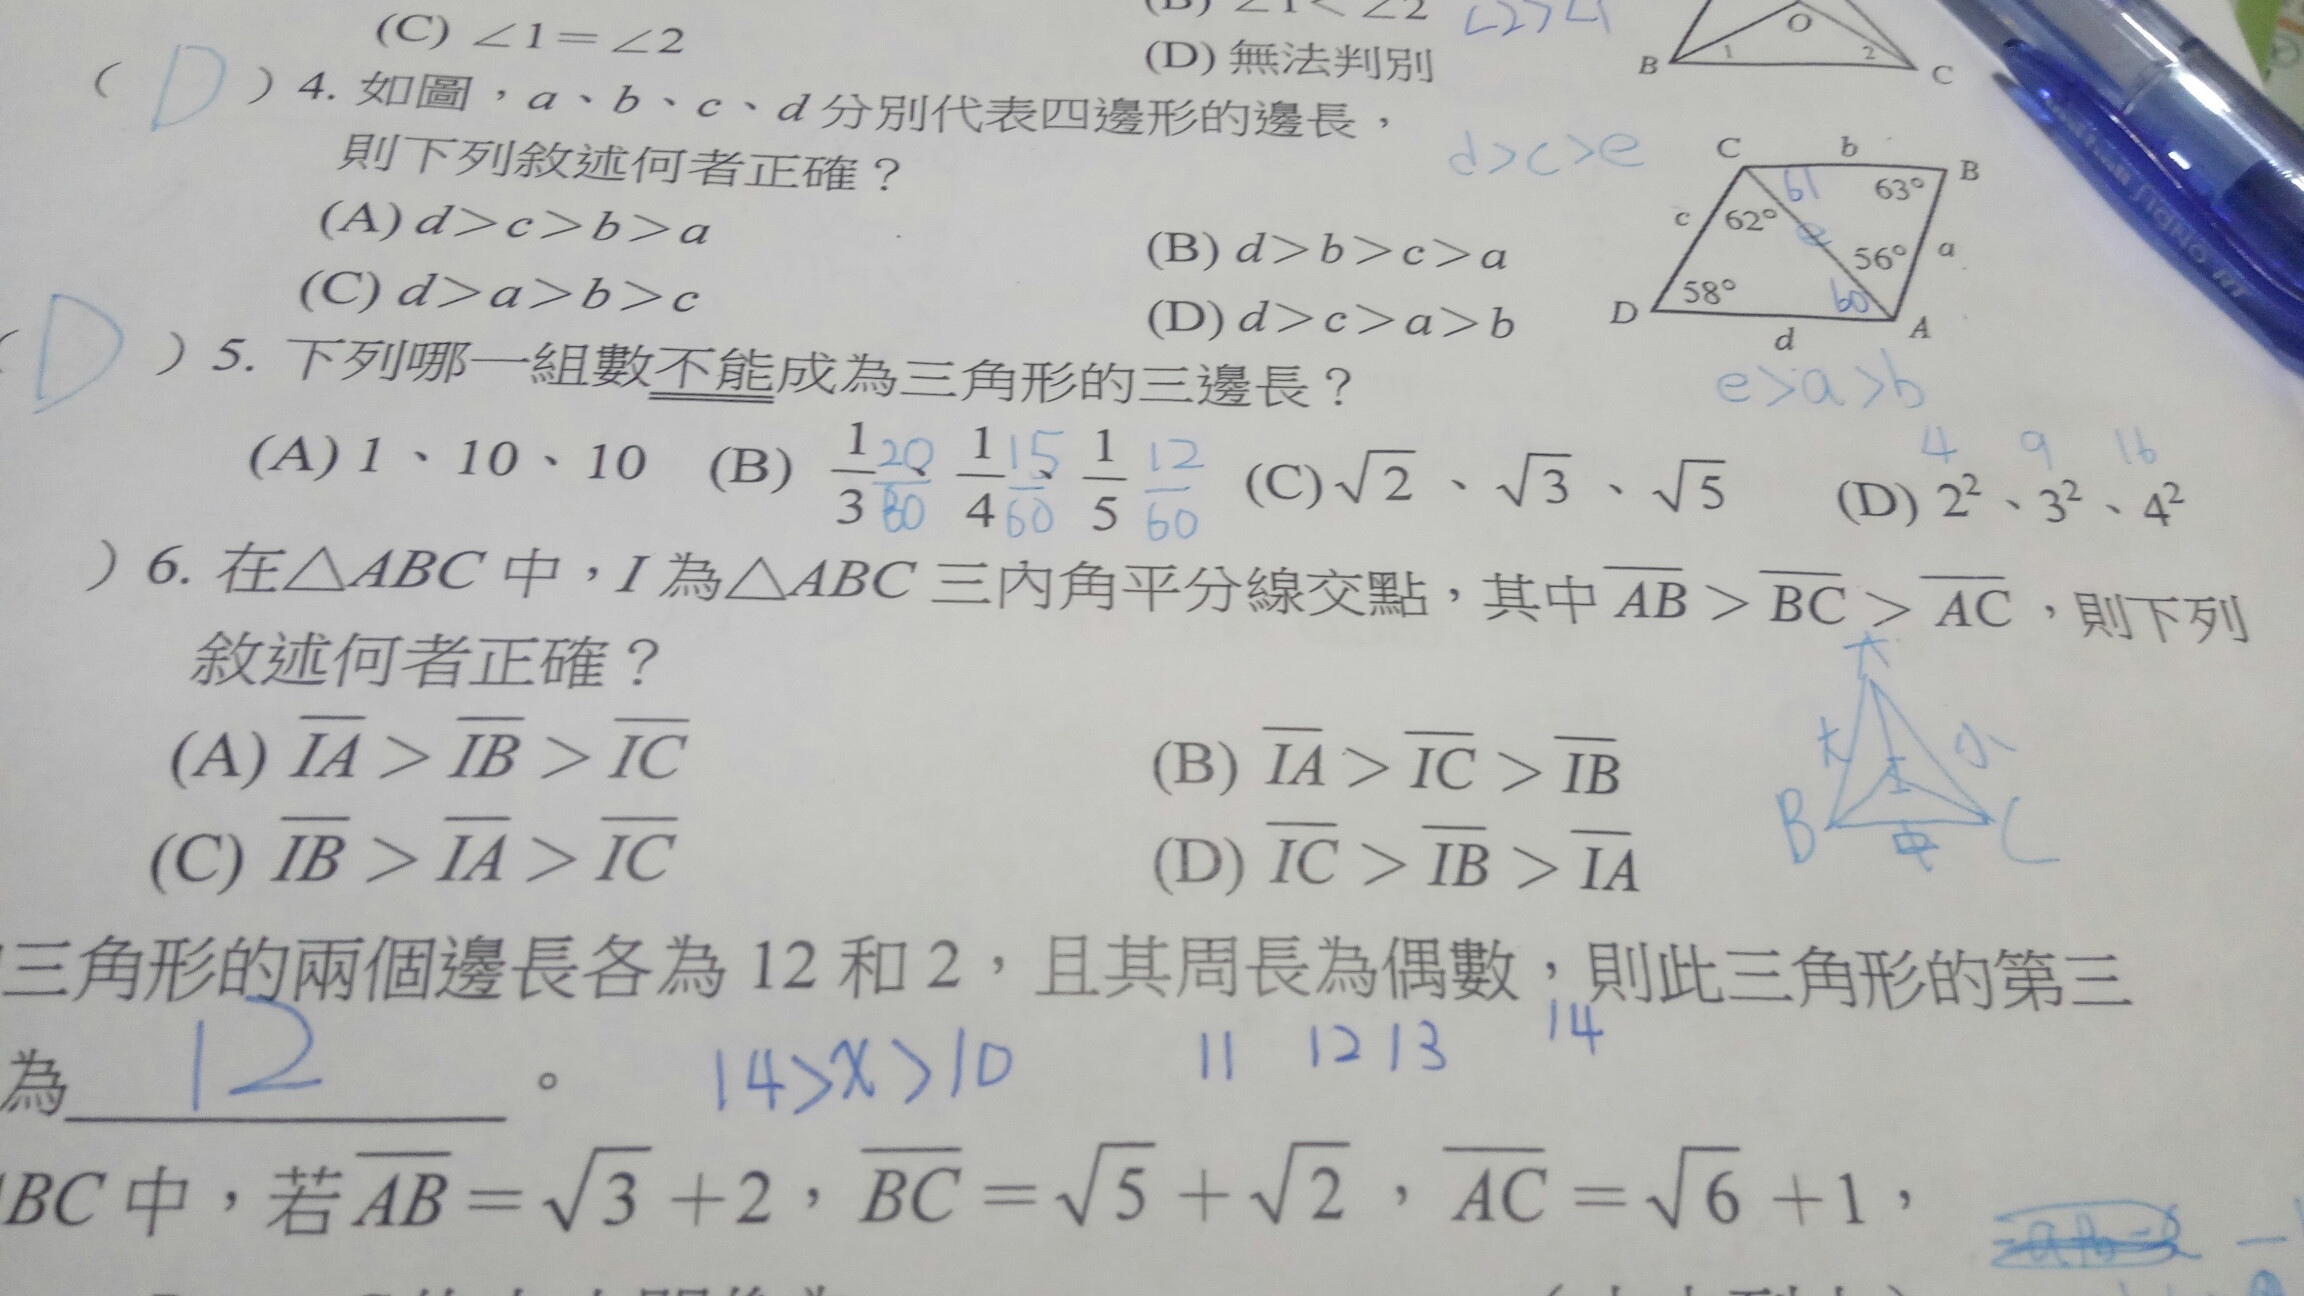 (B) ∠1<∠2 ∠2>∠1
(C) ∠1=∠2
(D) 無法判別
B 1 O 2 C
( D ) 4. 如圖，a、b、c、d 分別代表四邊形的邊長，
則下列敘述何者正確？
d>c>e
(A) d>c>b>a
(B) d>b>c>a
(C) d>a>b>c
(D) d>c>a>b
C b B
61 63°
c 62° e 56° a
58° 60
D d A
e>a>b
( D ) 5. 下列哪一組數不能成為三角形的三邊長？
4 9 16
(A) 1、10、10 (B) 1/3 20/60、1/4 15/60、1/5 12/60 (C) √2、√3、√5 (D) 2²、3²、4²
) 6. 在△ABC 中，I 為△ABC 三內角平分線交點，其中 AB > BC > AC，則下列
敘述何者正確？
(A) IA > IB > IC
(B) IA > IC > IB
(C) IB > IA > IC
(D) IC > IB > IA
大 小
I
B 中 C
三角形的兩個邊長各為 12 和 2，且其周長為偶數，則此三角形的第三
為 12 。 14>x>10 11 12 13 14
BC 中，若 AB = √3 +2，BC = √5 + √2，AC = √6 +1，